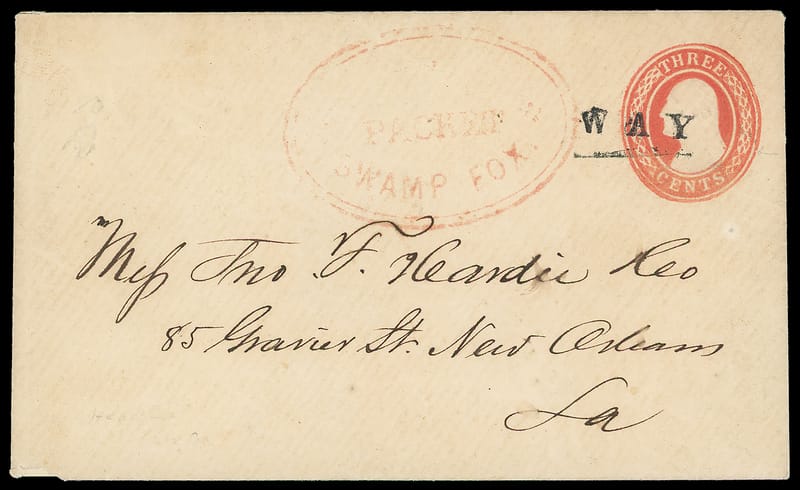 PACKET
SWAMP FOX.
WAY
THREE
CENTS
Mess Jno. F. Hardie &Co
85 Gravier St. New Orleans
La